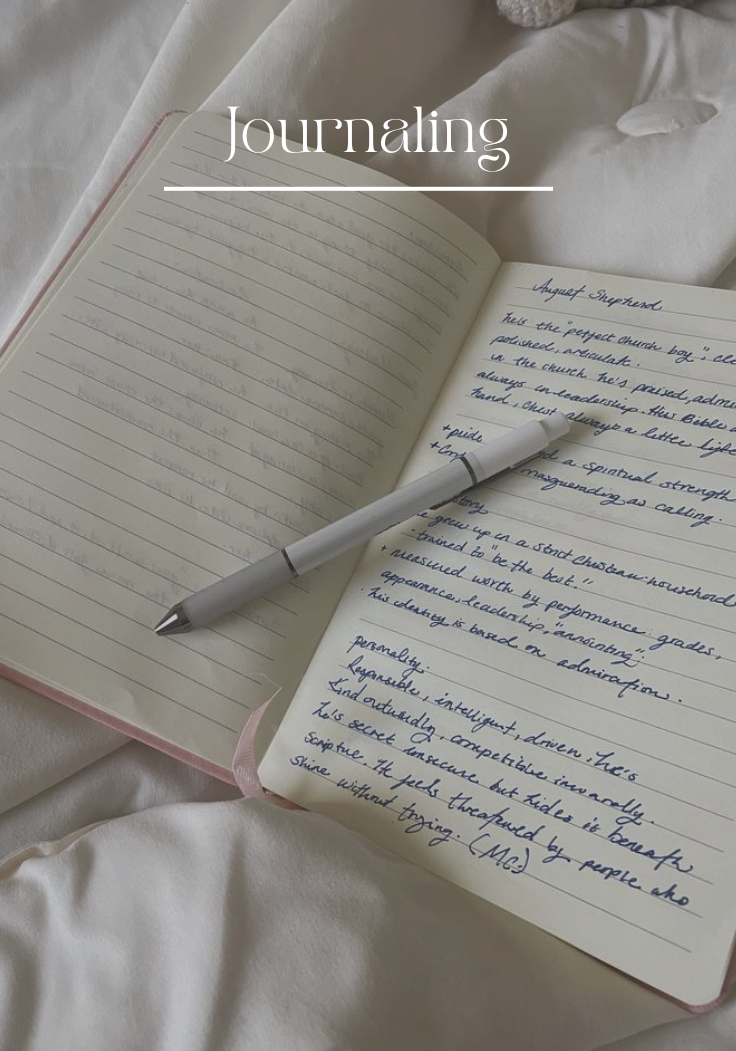 Journaling
August Shepherd
he's the "perfect church boy"; cle
polished, articulate.
in the church he's praised, admi
always in leadership. His Bible a
hand, chest always a little light
+ pride
d a spiritual strength
masquerading as calling.
story
grew up in a strict Christian household
trained to "be the best."
+ measured worth by performance: grades,
appearance, leadership, "annointing".
his identity is based on admiration.
personality:
Responsible, intelligent, driven. he's
kind outwardly, competitive inwardly.
he's secret insecure but hides it beneath
scripture. He feels threatened by people who
shine without trying. (Mc:)